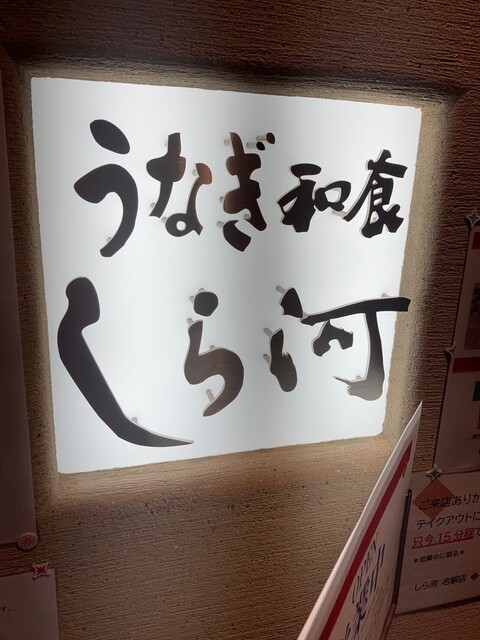 うなぎ和食
しら河
ご来店ありが
テイクアウトに
只今15分程で
＊営業中に限る＊
しら河 名駅店
OPEN